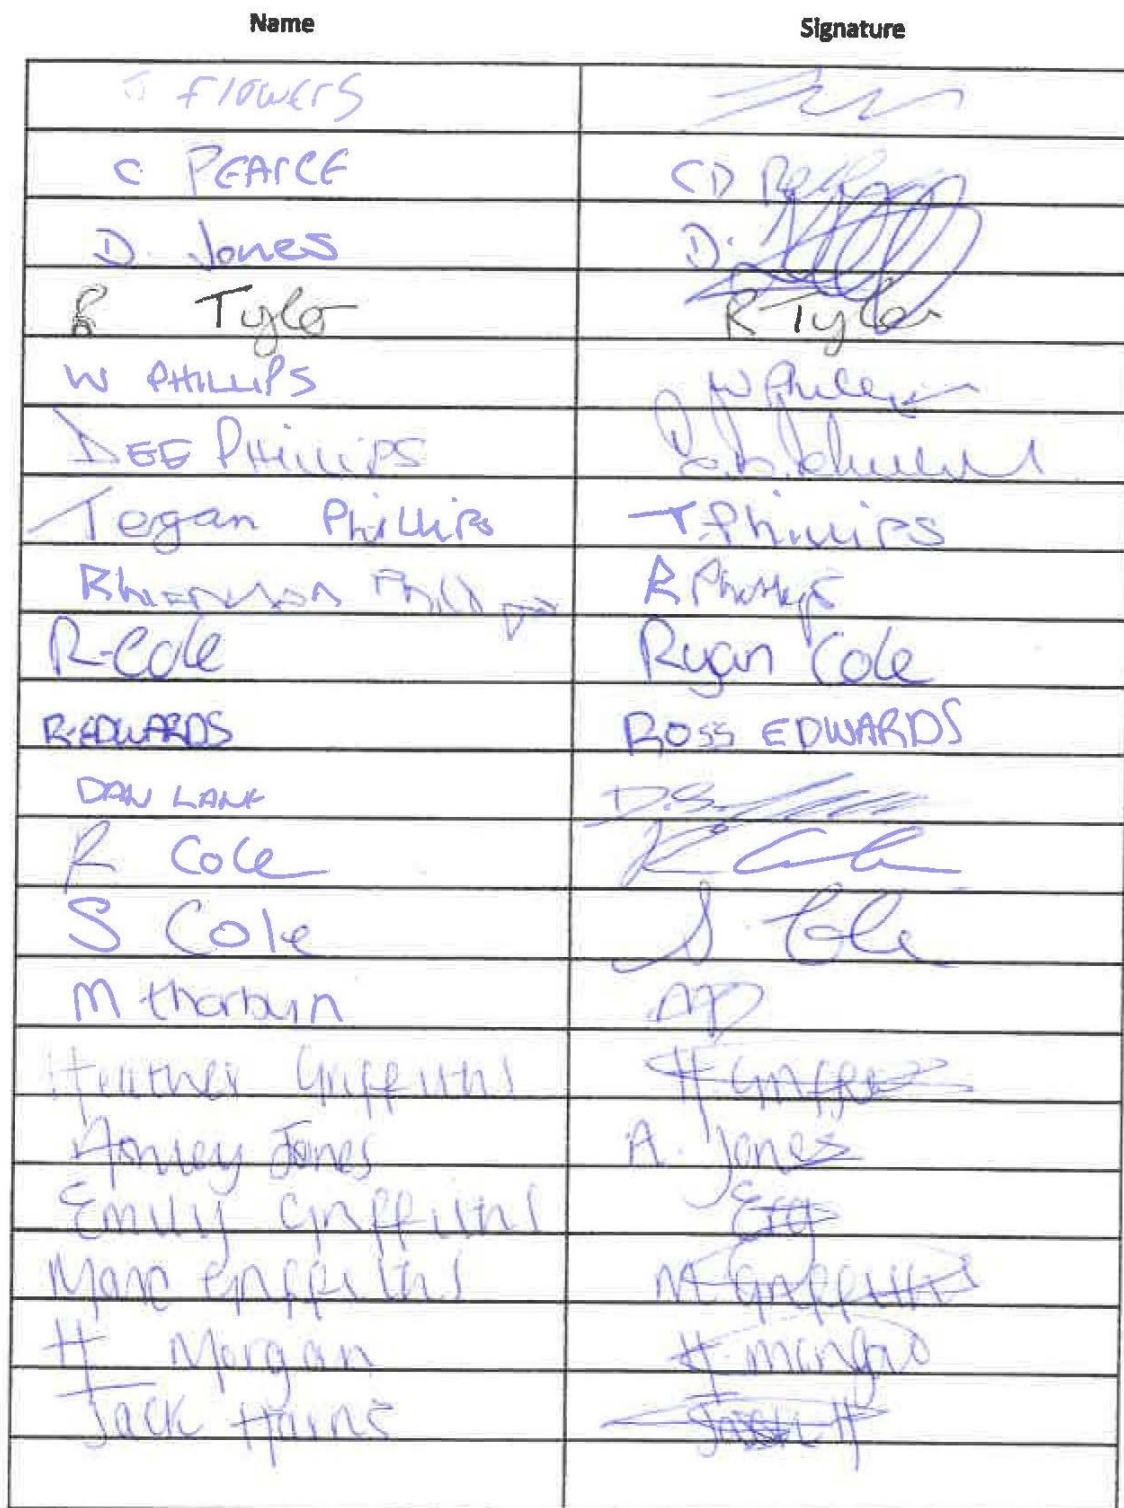 Name Signature
J Flowers
C PEARCE CD
D. Jones D.
R Tyler R Tyler
W PHILLIPS W
DEE PHILLIPS
Tegan Phillips T. Phillips
Rhiannon Phillips R Phillips
R-Cole Ryan Cole
R.EDWARDS ROSS EDWARDS
DAN LANE D.S.
R Cole R
S Cole S. Cole
M thorburn
Heather Griffiths H Griff
Jones A. Jones
Emily Griffiths EG
Marc Griffiths M Griffiths
H Morgan H.
Jack H